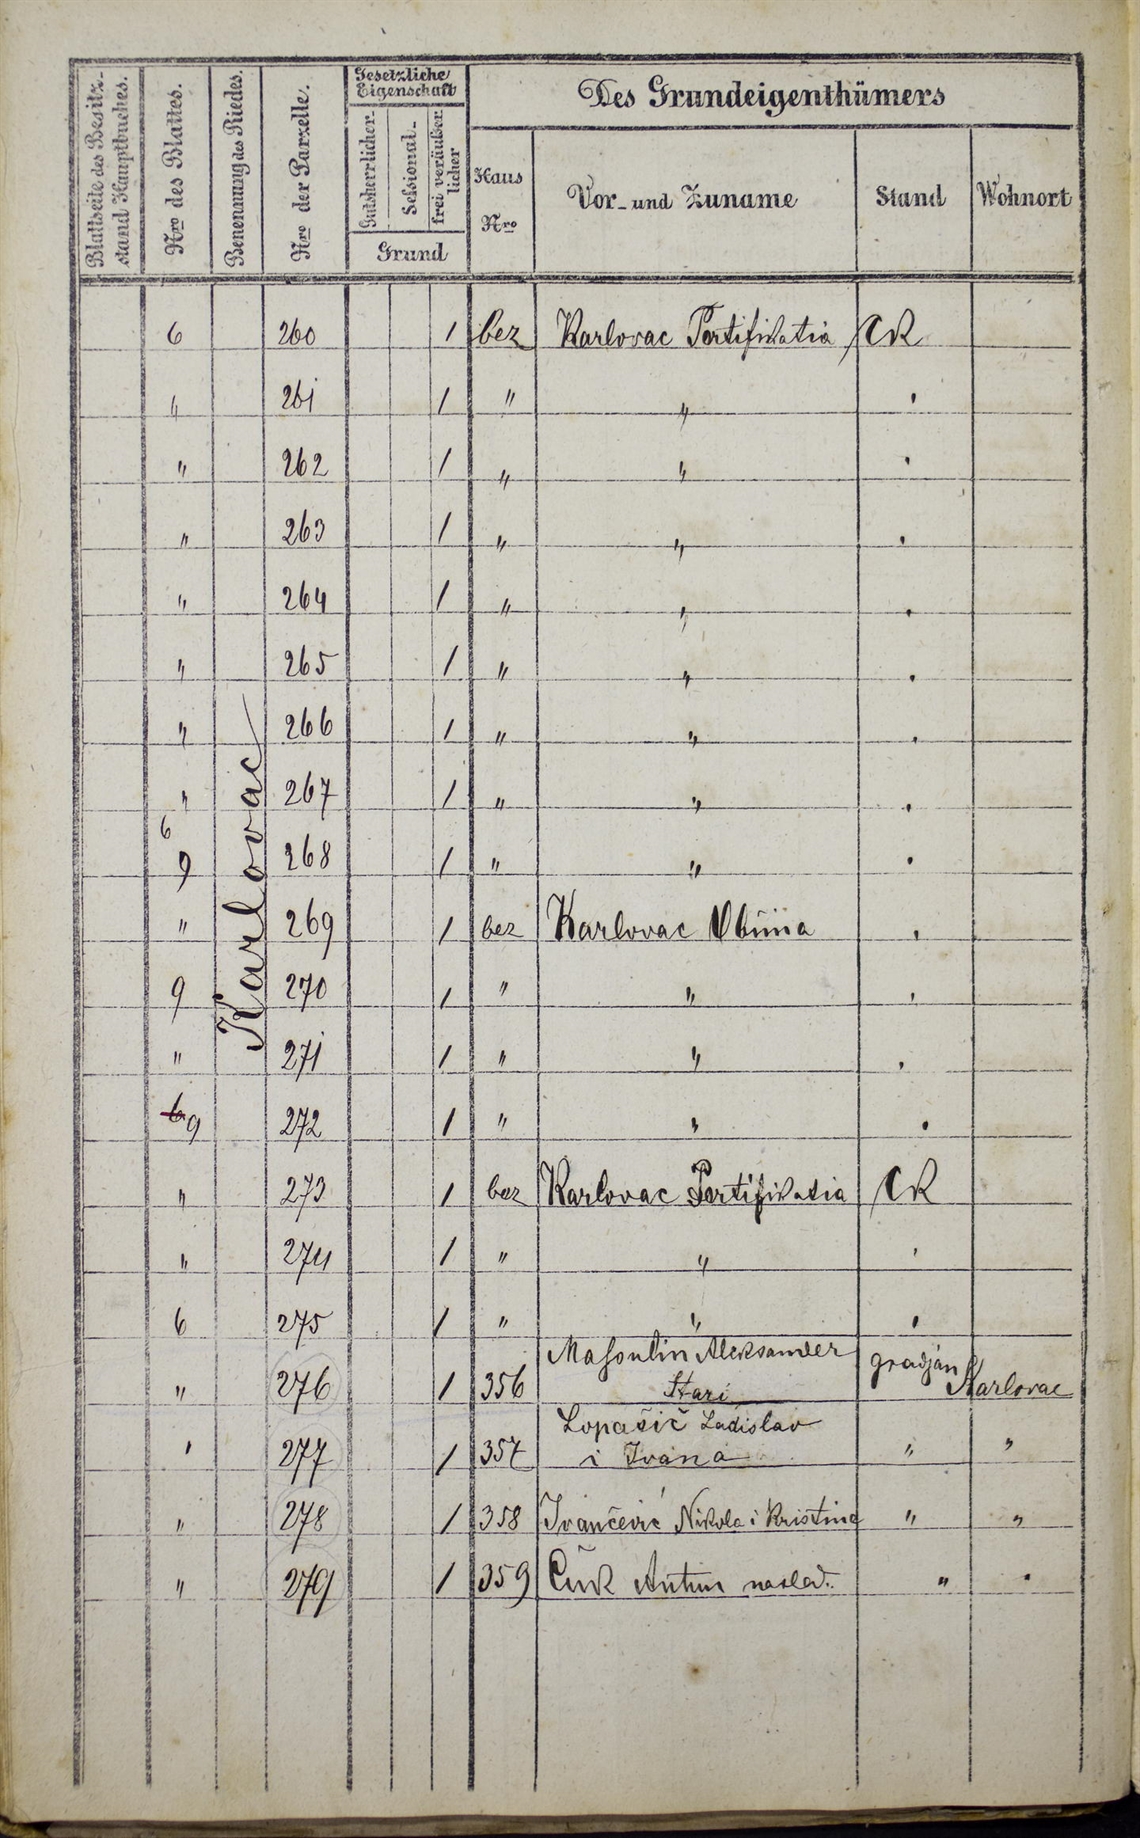 Blattseite des Besitz-
stand Hauptbuches.
Nro des Blattes.
Benennung des Riedes.
Nro der Parzelle.
Gesetzliche
Eigenschaft
Gutsherrlicher
Sessional-
frei veräußer
licher
Grund
Des Grundeigenthümers
Haus
Nro
Vor- und Zuname
Stand
Wohnort
Karlovac
6 260 1 bez Karlovac Fortifikatia CK
" 261 1 " " "
" 262 1 " " "
" 263 1 " " "
" 264 1 " " "
" 265 1 " " "
" 266 1 " " "
" 267 1 " " "
6
9 268 1 " " "
" 269 1 bez Karlovac Obćina "
9 270 1 " " "
" 271 1 " " "
6 9 272 1 " " "
" 273 1 bez Karlovac Fortifikatia CK
" 274 1 " " "
6 275 1 " " "
" 276 1 356 Aleksander
Stari gradjan Karlovac
" 277 1 357 Lopašić Ladislav
i Ivana " "
" 278 1 358 Ivančević Nikola i Kristina " "
" 279 1 359 Čuk Antun nasled. " "